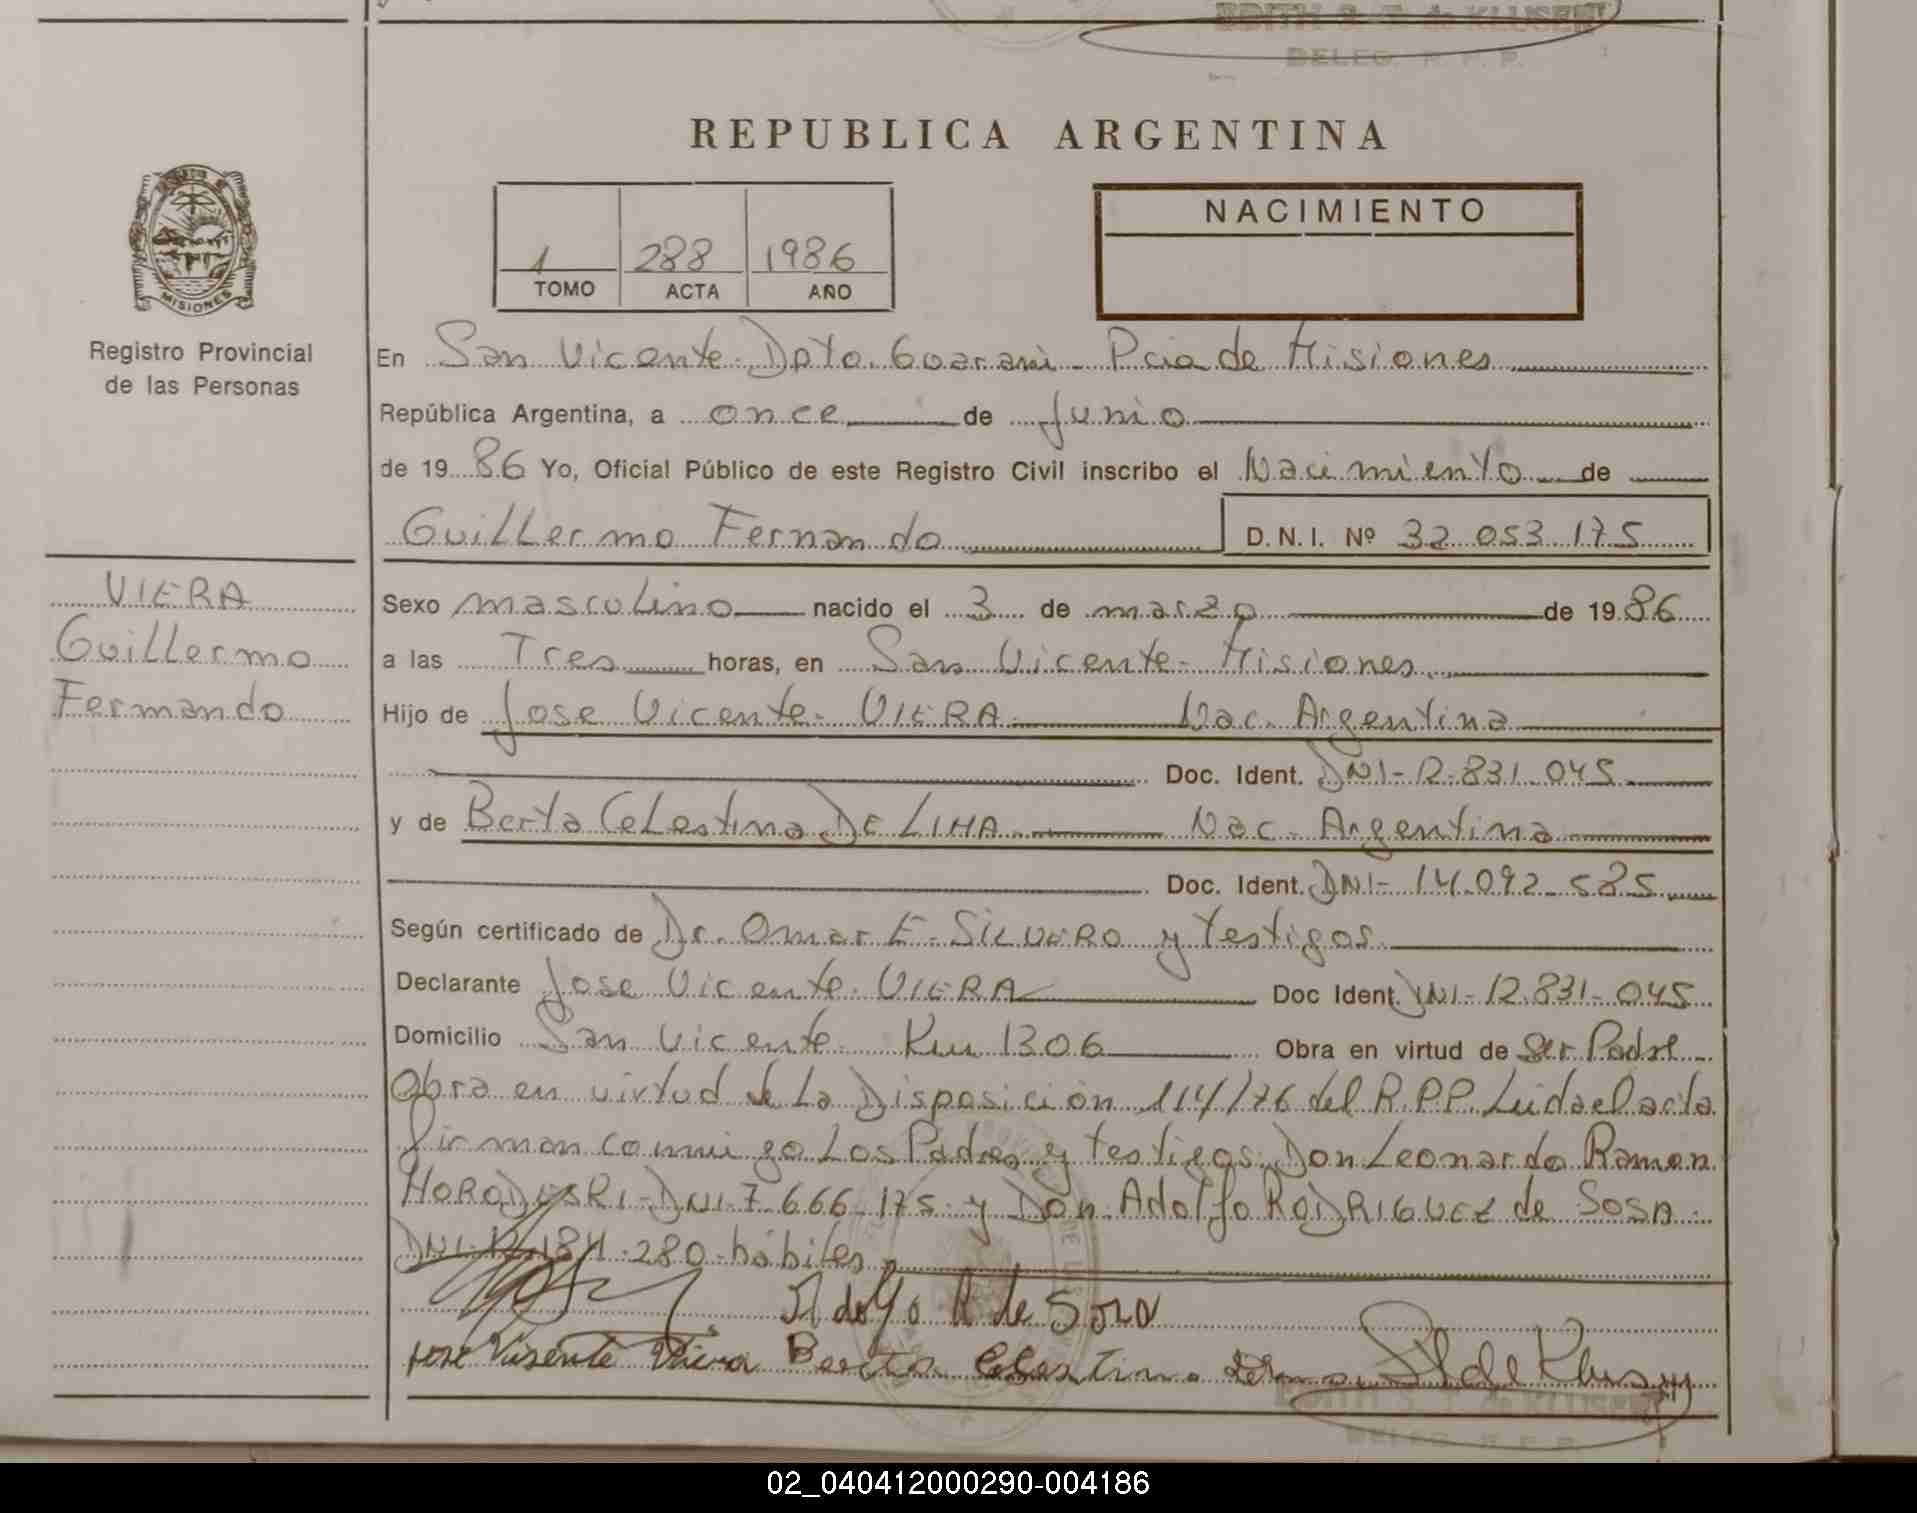 EDITH S. T. de KLUSENER
DELEG. R. P. P.
REPUBLICA ARGENTINA
NACIMIENTO
1 288 1986
TOMO ACTA AÑO
MISIONES
Registro Provincial
de las Personas
En San Vicente Dpto. Guarani - Pcia de Misiones
República Argentina, a once de Junio
de 1986 Yo, Oficial Público de este Registro Civil inscribo el Nacimiento de
Guillermo Fernando D.N.I. Nº 32 053 175
VIERA
Guillermo
Fernando
Sexo masculino nacido el 3 de marzo de 1986
a las Tres horas, en San Vicente - Misiones
Hijo de Jose Vicente VIERA Nac. Argentina
Doc. Ident. DNI - 12.831.045
y de Berta Celestina DE LIMA Nac. Argentina
Doc. Ident. DNI - 14.092.585
Según certificado de Dr. Omar E. SILVERO y testigos
Declarante Jose Vicente VIERA Doc Ident. DNI - 12.831.045
Domicilio San Vicente Km 1306 Obra en virtud de Ser Padre
Obra en virtud de La Disposición 114/76 del R.P.P. Leida el acta
firman conmigo Los Padres y testigos Don Leonardo Ramon
DNI 7.666.175 y Don Adolfo RODRIGUEZ de SOSA
DNI 280 hábiles
Adolfo R de Sosa
Jose Visente Viera Berta Celestina de Lima
EDITH S. T. de KLUSENER
DELEG. R. P. P.
02_040412000290-004186